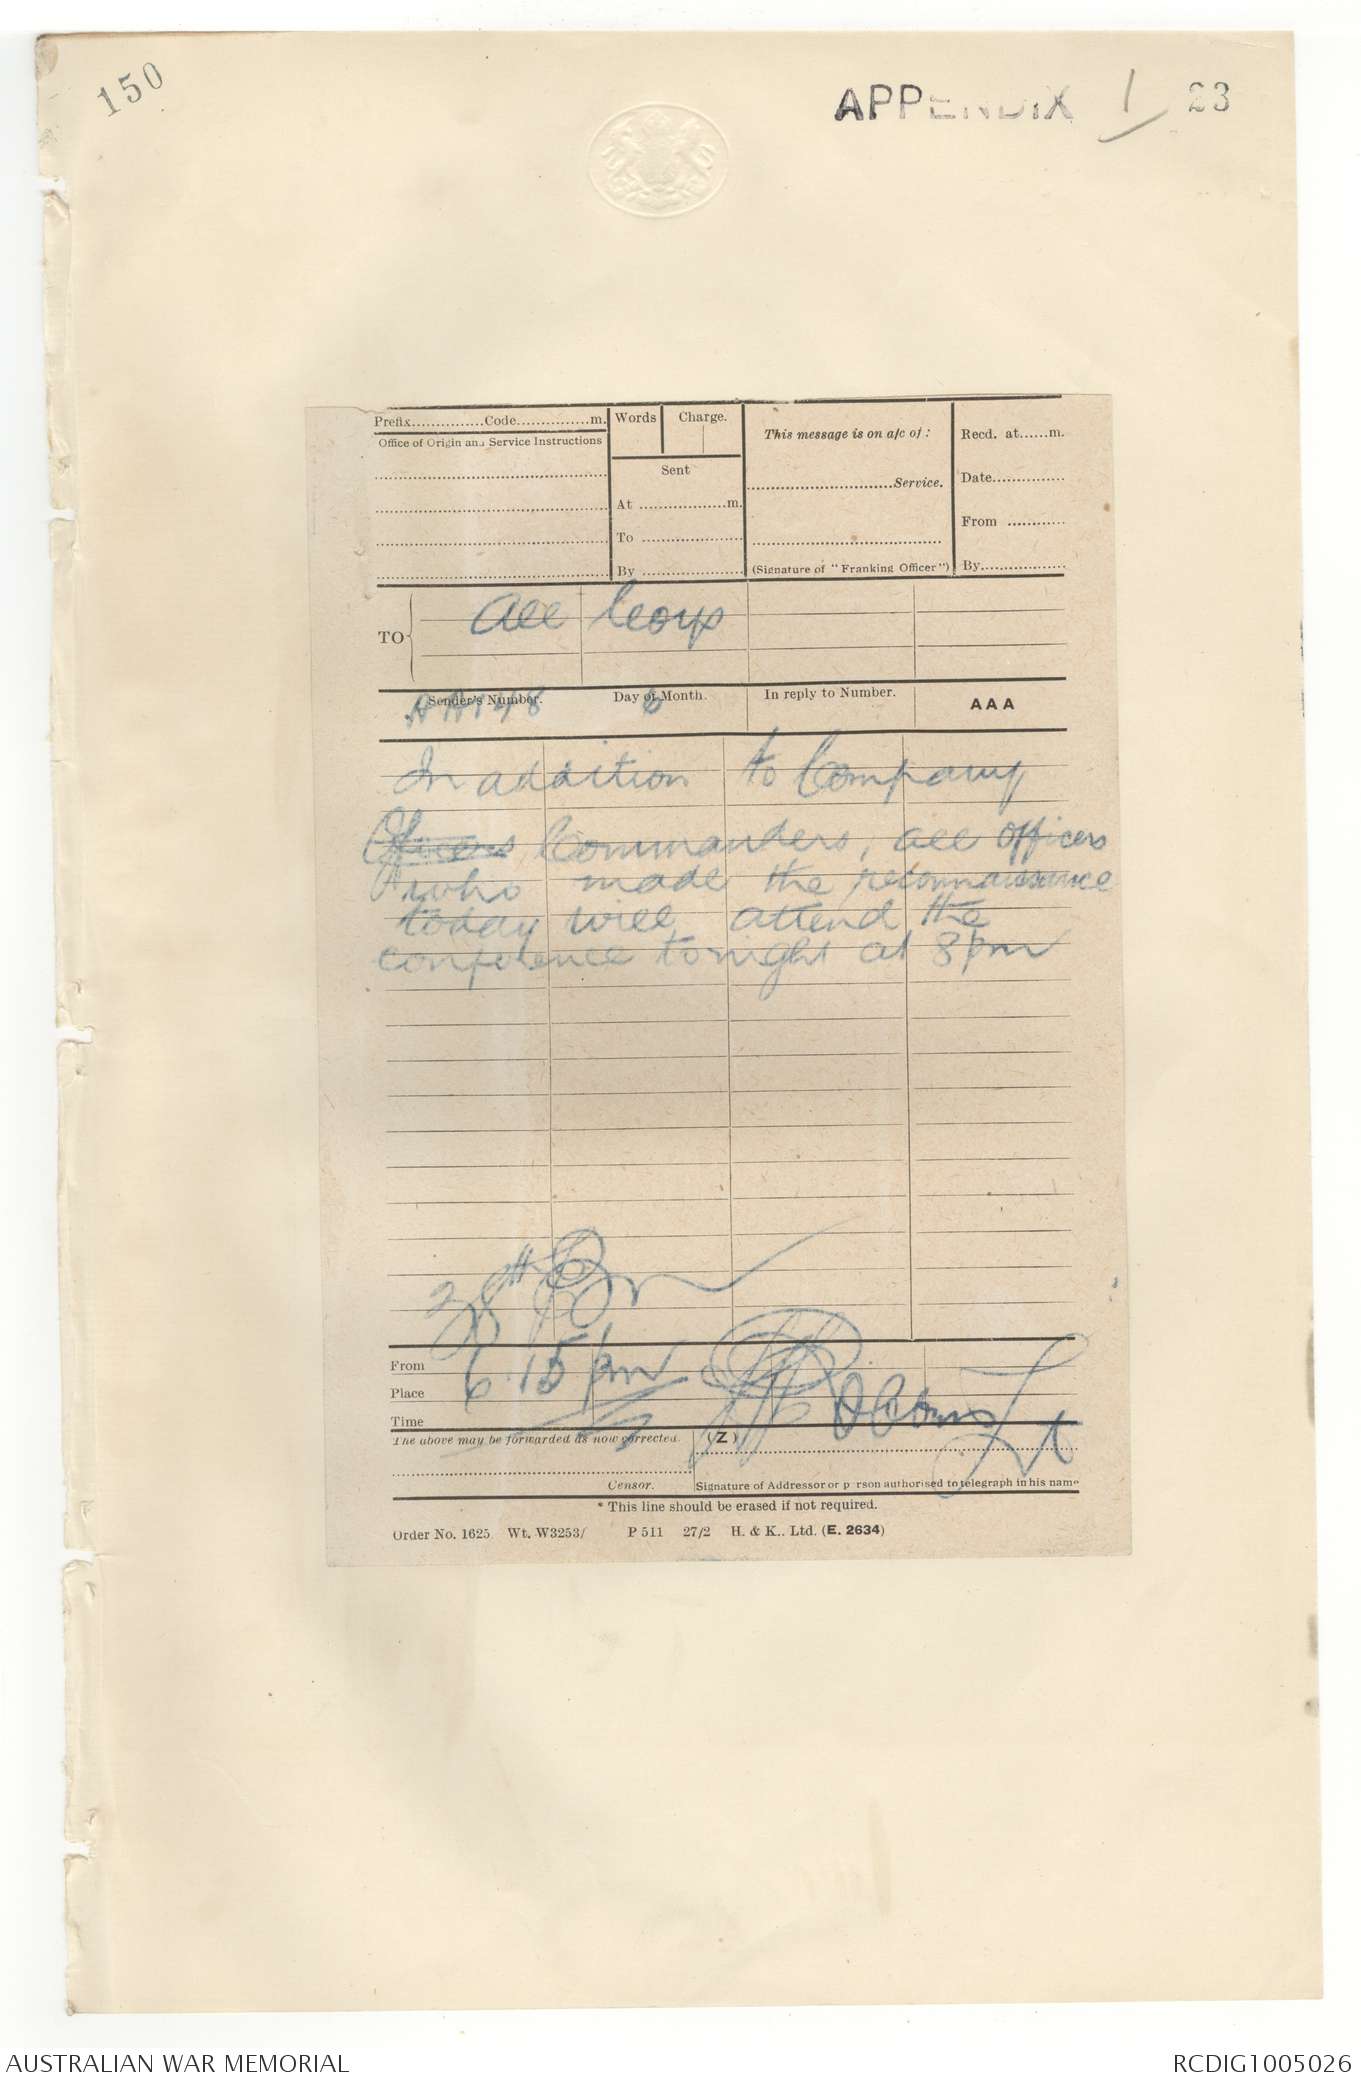 150
APPENDIX 1/ 23
Prefix...............Code...............m.
Words
Charge.
This message is on a/c of :
Recd. at......m.
Office of Origin and Service Instructions
Sent
..............................Service.
Date...............
At ..................m.
From ............
To .....................
By .....................
(Signature of "Franking Officer")
By.................
TO
All Coys
Sender's Number.
Day of Month.
In reply to Number.
AAA
AA148
6
In addition to Company
Officers Commanders, all officers
who made the reconnaissance
today will attend the
conference tonight at 8pm
38th Bn
From
Place
Time
6.15pm
Lt
The above may be forwarded as now corrected.
(Z)
Censor.
Signature of Addressor or person authorised to telegraph in his name
* This line should be erased if not required.
Order No. 1625 Wt. W3253/ P 511 27/2 H. & K., Ltd. (E. 2634)
AUSTRALIAN WAR MEMORIAL
RCDIG1005026